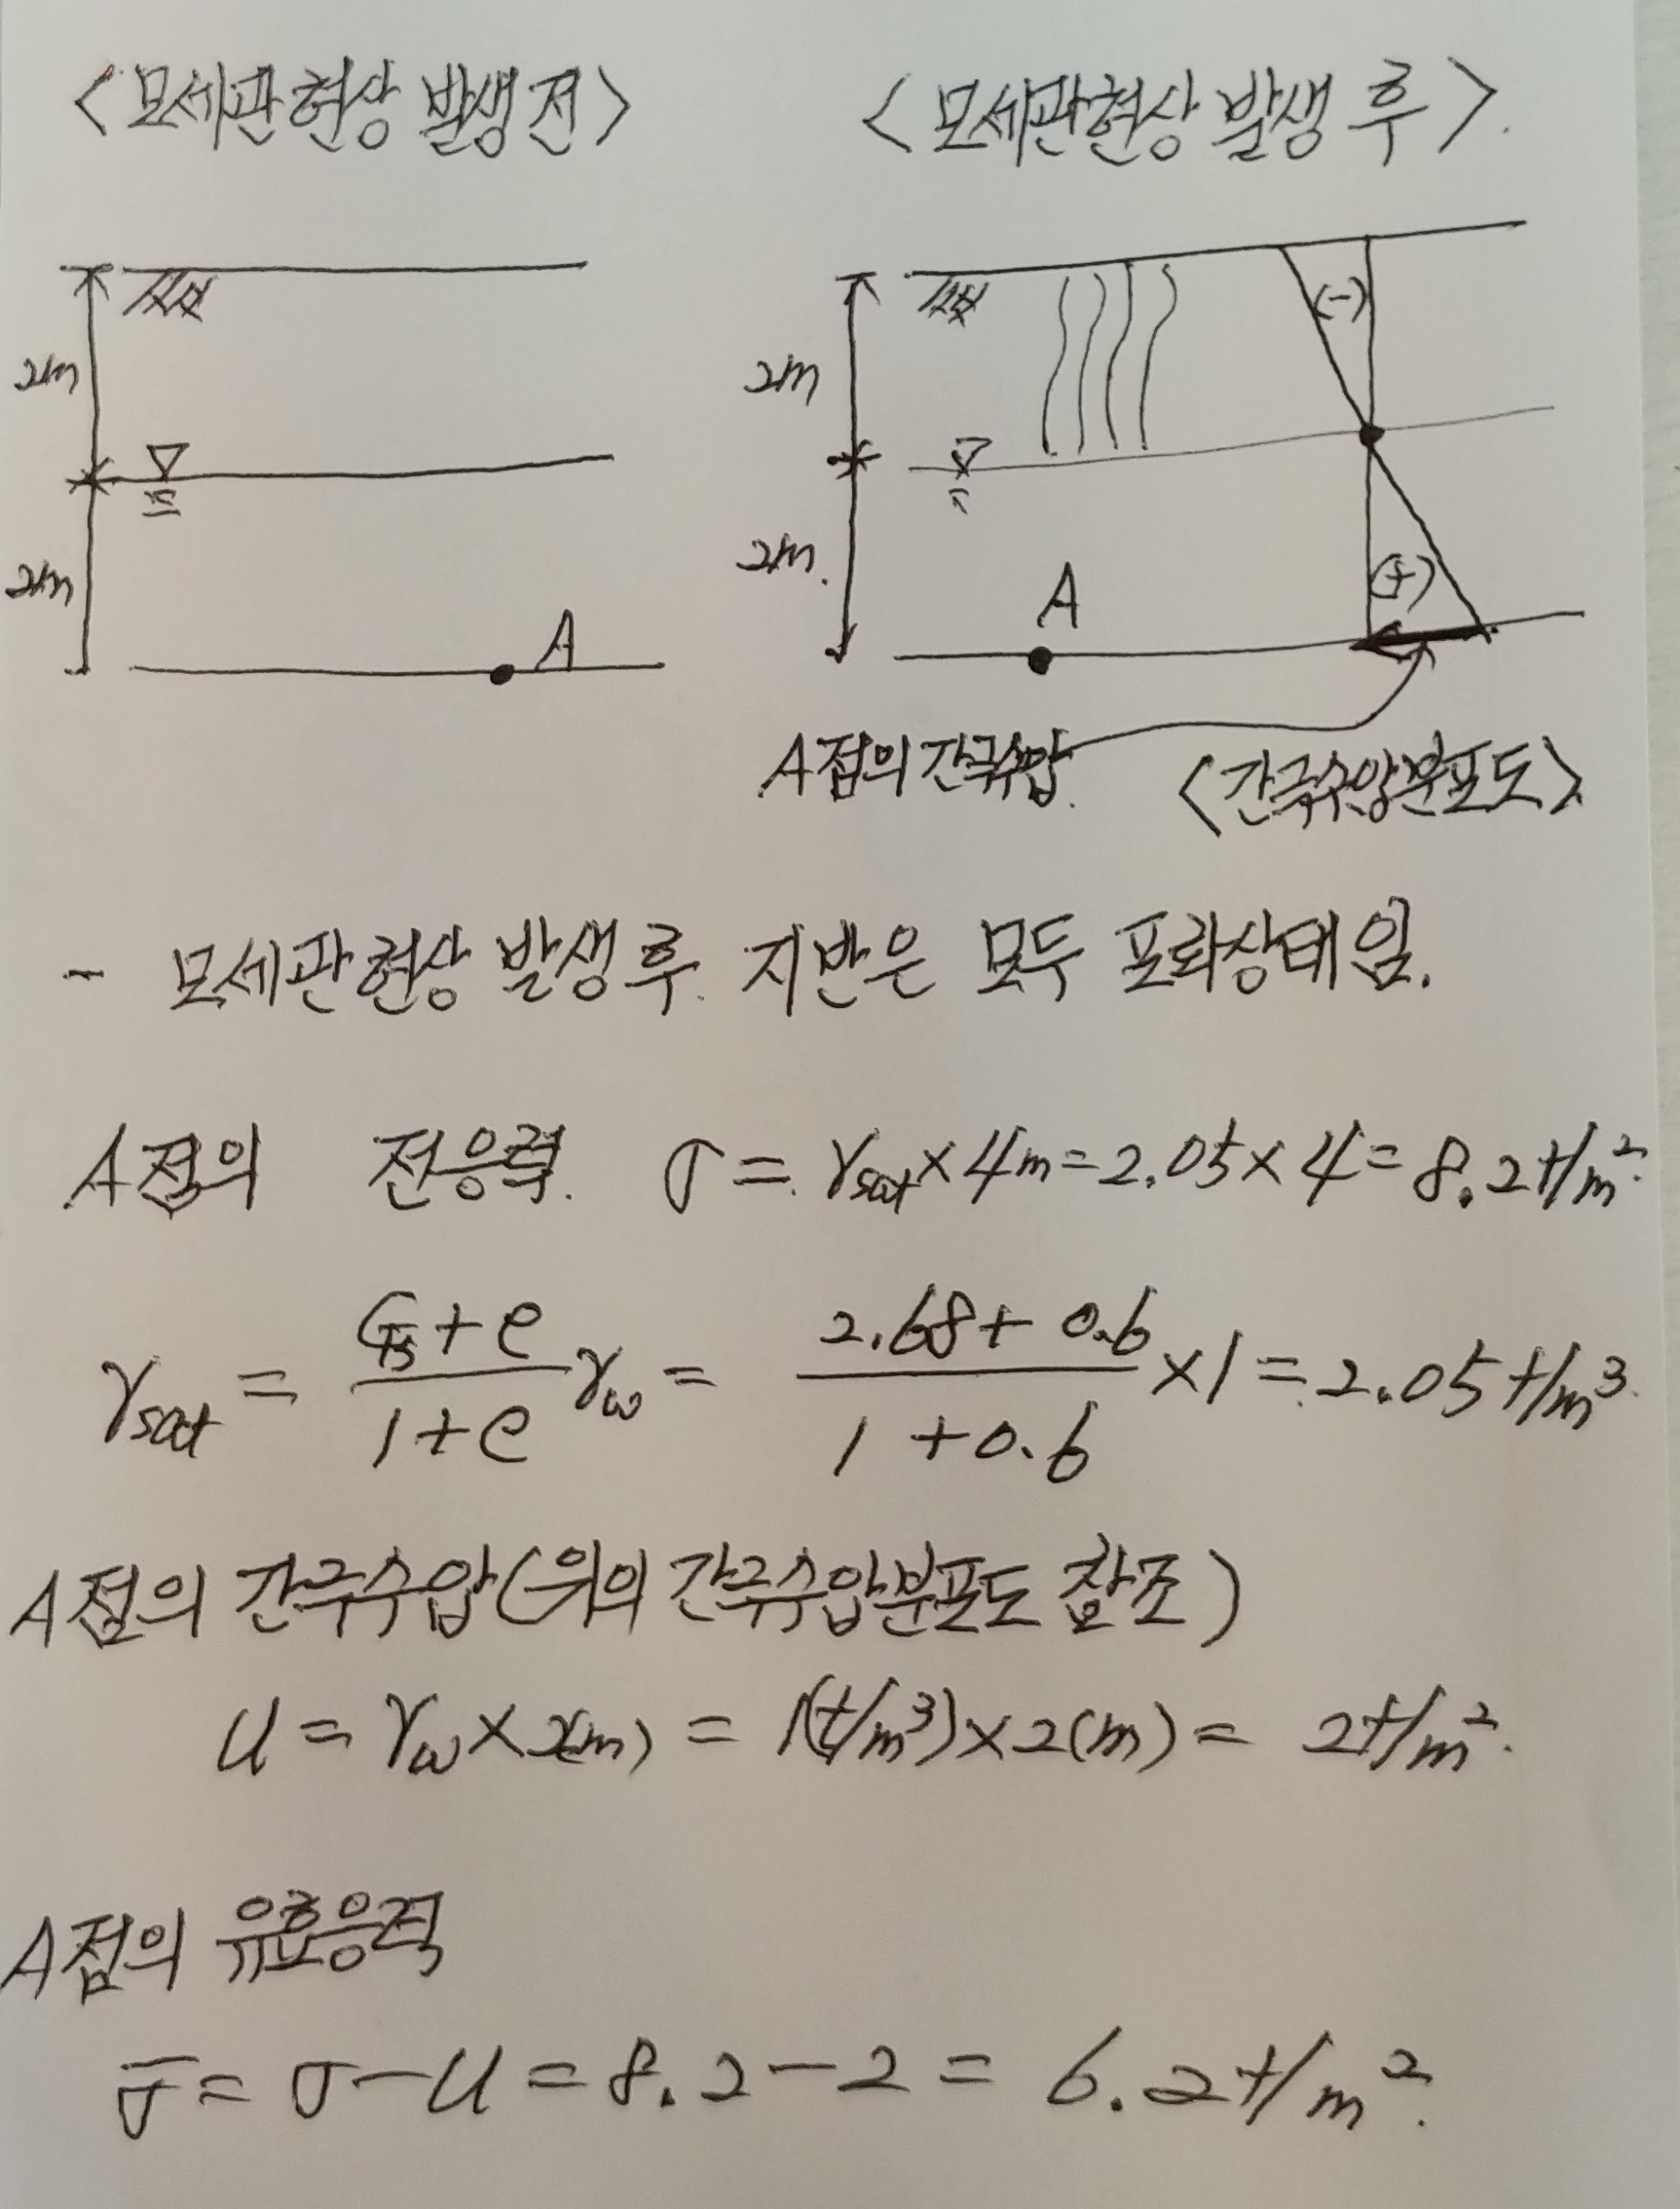 <모세관현상 발생 전>
<모세관현상 발생 후>.
2m
2m
A
2m
2m.
A
(-)
(+)
A점의 간극수압.
<간극수압분포도>
- 모세관현상 발생 후. 지반은 모두 포화상태임.
A점의 전응력. σ = γsat × 4m = 2.05 × 4 = 8.2 t/m².
γsat = (Gs + e)/(1 + e) γw = (2.68 + 0.6)/(1 + 0.6) × 1 = 2.05 t/m³.
A점의 간극수압 (위의 간극수압분포도 참조)
u = γw × 2(m) = 1(t/m³) × 2(m) = 2t/m².
A점의 유효응력
σ̅ = σ - u = 8.2 - 2 = 6.2 t/m².